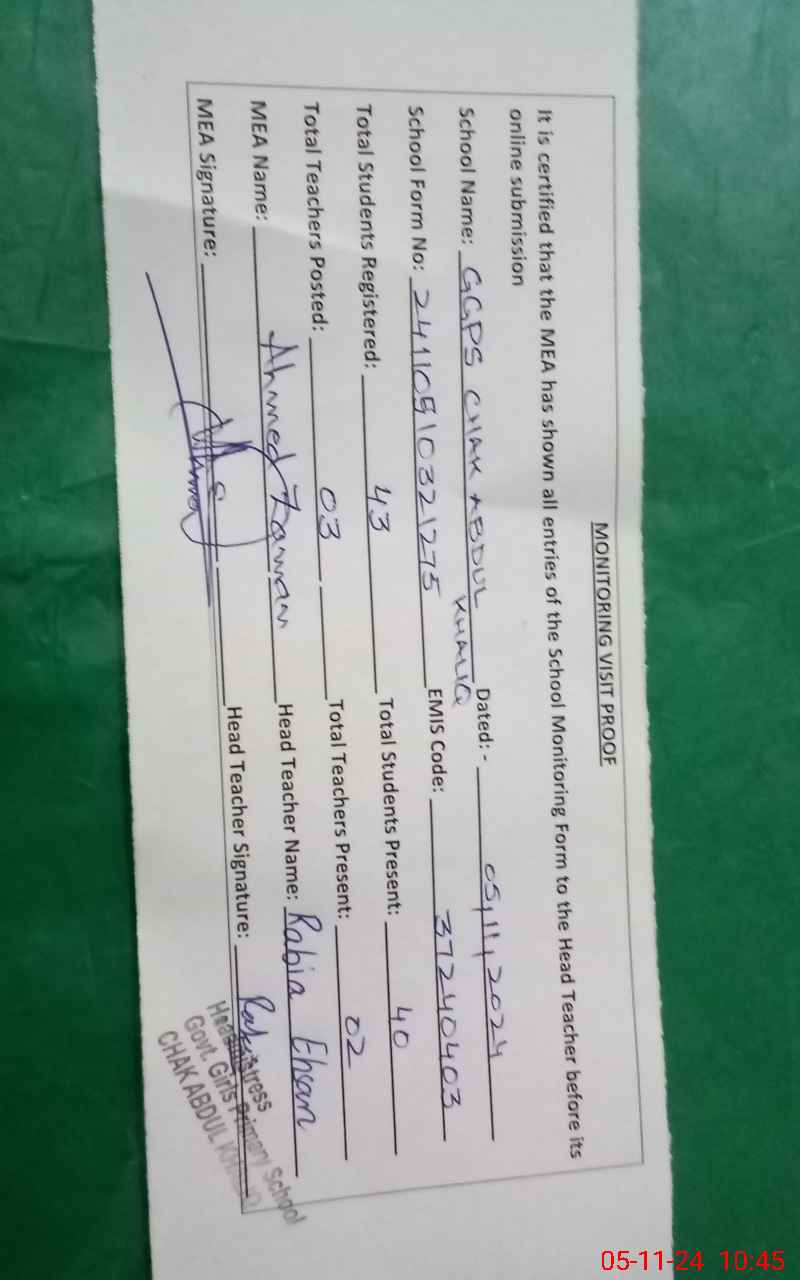 MONITORING VISIT PROOF
It is certified that the MEA has shown all entries of the School Monitoring Form to the Head Teacher before its
online submission
School Name: GGPS CHAK ABDUL KHALIQ Dated: - 05,11,2024
School Form No: 241105103221275 EMIS Code: 37240403
Total Students Registered: 43 Total Students Present: 40
Total Teachers Posted: 03 Total Teachers Present: 02
MEA Name: Ahmed Zaman Head Teacher Name: Rabia Ehsan
MEA Signature: Head Teacher Signature:
Headmistress
Govt. Girls Primary School
CHAK ABDUL KHALIQ
05-11-24 10:45